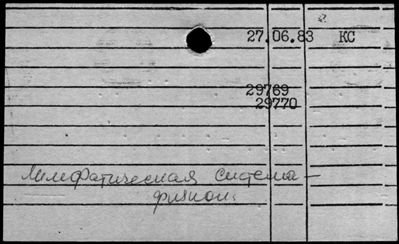 27.06.83 КС
29769
29770
Лимфатическая система —
физиол.